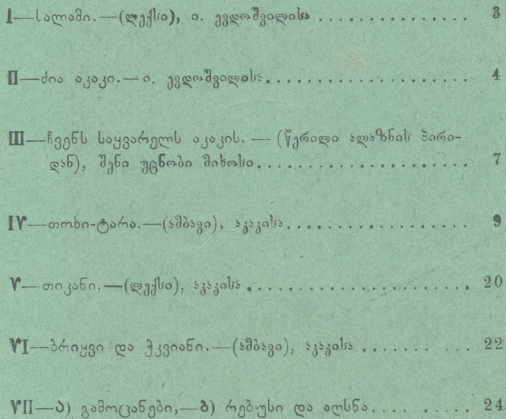 I—სალამი.—(ლექსი), ი. ევდოშვილისა .................. 3
II—ძია აკაკი.—ი. ევდოშვილის........................ 4
III—ჩვენს საყვარელს აკაკის.—(წერილი ალაზნის პირი-
დან), შენი უცნობი მიხოსი........................ 7
IV—თოხი-ტარა.—(ამბავი), აკაკისა........................ 9
V—თიკანი.—(ლექსი), აკაკისა........................ 20
VI—ბრიყვი და ჭკვიანი.—(ამბავი), აკაკისა............ 22
VII—ა) გამოცანები,—ბ) რებუსი და ახსნა............ 24